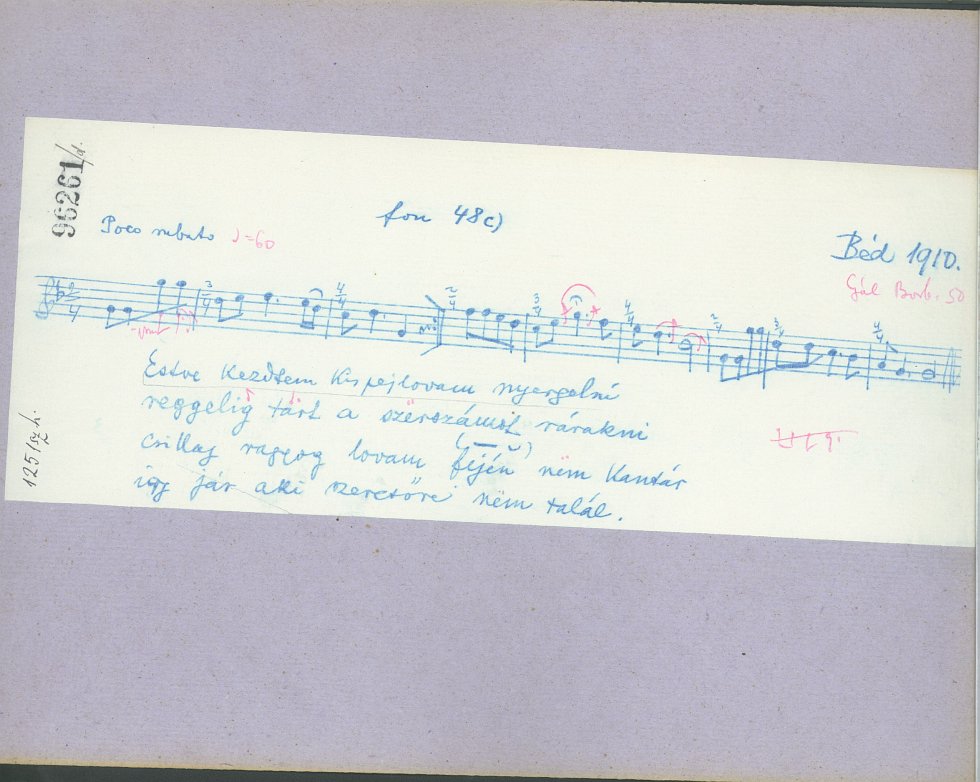 96261/d.
fon 48c)
Poco rubato ♩=60
Béd 1910.
Gál Borb. 50
Estve kezdtem kispejlovam nyergelni
reggelig tárt a szërszámot rárakni
csillag ragyog lovam fején nëm kantár
így jár aki szeretőre nëm talál.
125/sz h.